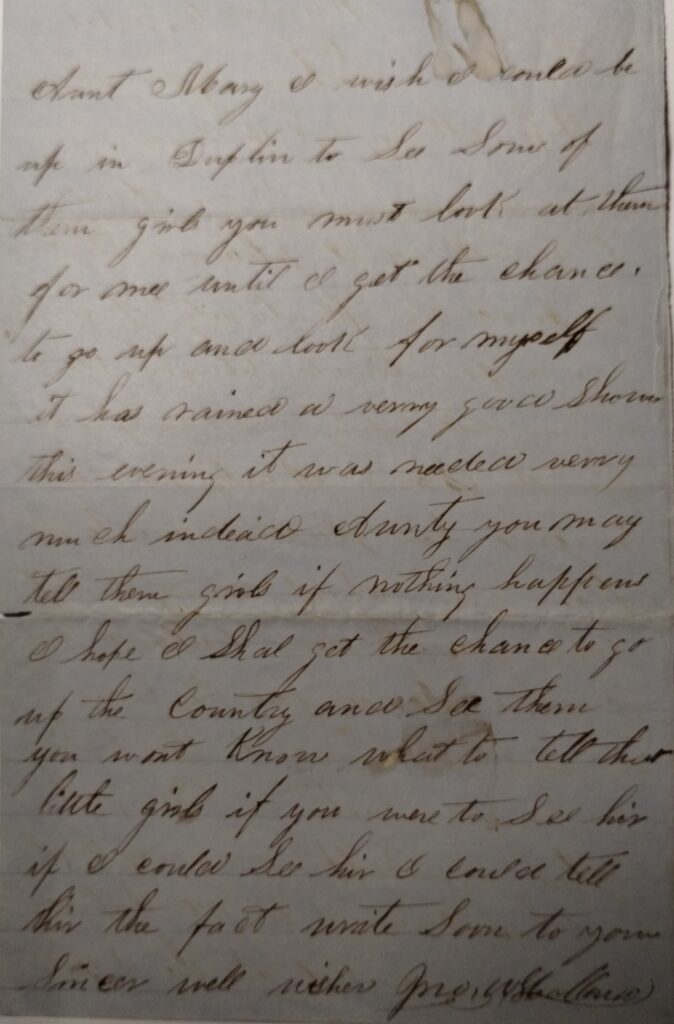 Aunt Mary I wish I could be
up in Duplin to See Some of
them girls you must look at them
for mee until I get the chance.
to go up and look for myself
it has rained a verry good Shower
this evening it was needed verry
much indeed Aunty you may
tell them girls if nothing happens
I hope I Shal get the chance to go
up the Country and See them
you wont Know what to tell that
little girls if you were to See hir
if I could See hir I could tell
hir the fact write Soon to your
Sincer well wisher Jno. Holland